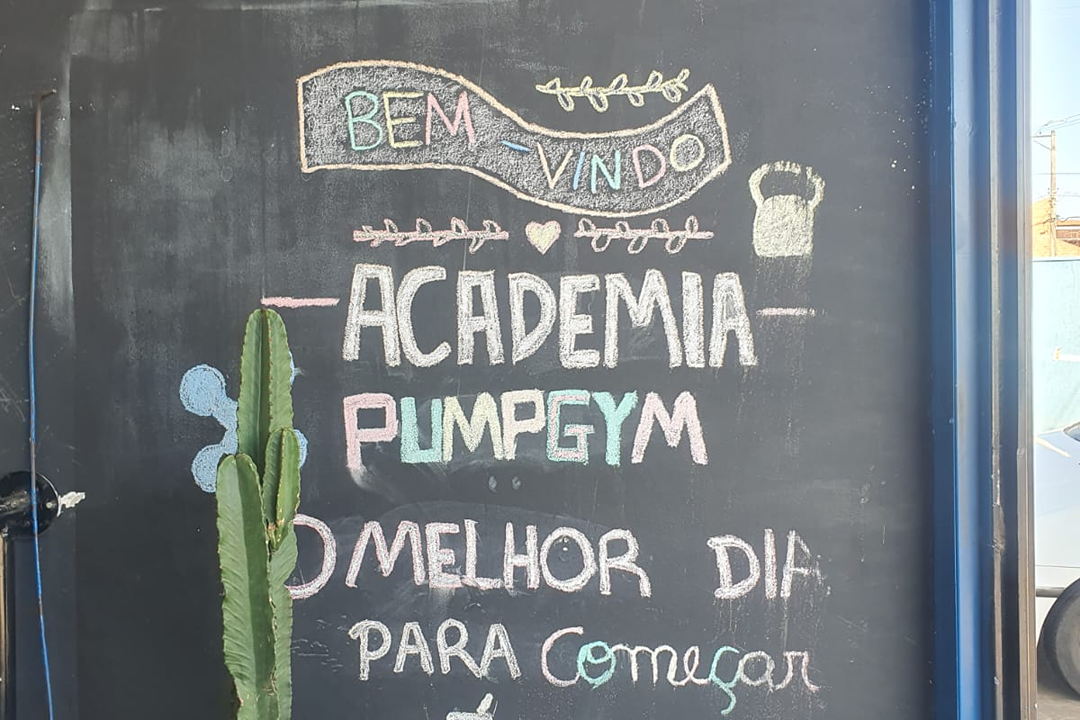 BEM-VINDO
ACADEMIA
PUMPGYM
O MELHOR DIA
PARA Começar